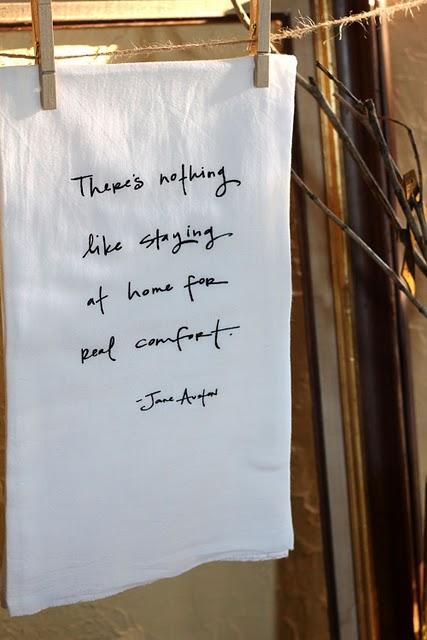 There's nothing
like staying
at home for
real comfort.
-Jane Austen